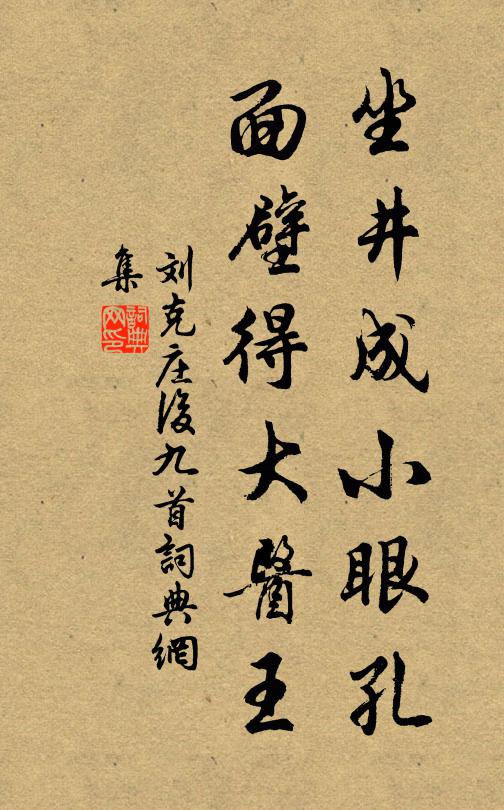 坐井成小眼孔
面壁得大醫王
刘克庄後九首詞典網
集
詞典
网印